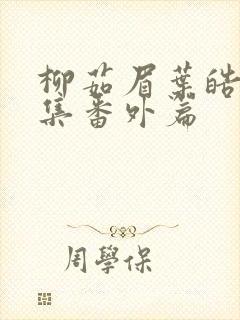 柳茹眉葉皓
集番外篇
周學保